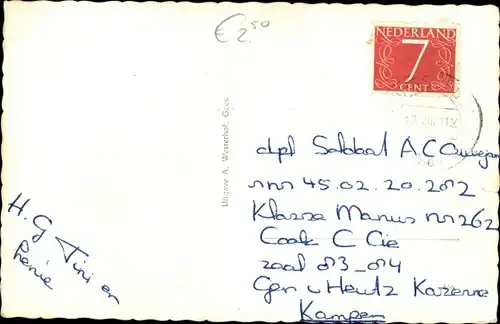 € 2.50
NEDERLAND
7
CENT
Uitgave A. Westerhof, Goes
dpl Soldaat A C Ouwejan
nnr 45.02.20.202
Klasse Manus nr 262
C Cie
zaal 83-84
Gen v Heutz Kazerne
Kampen
H. G Tini en